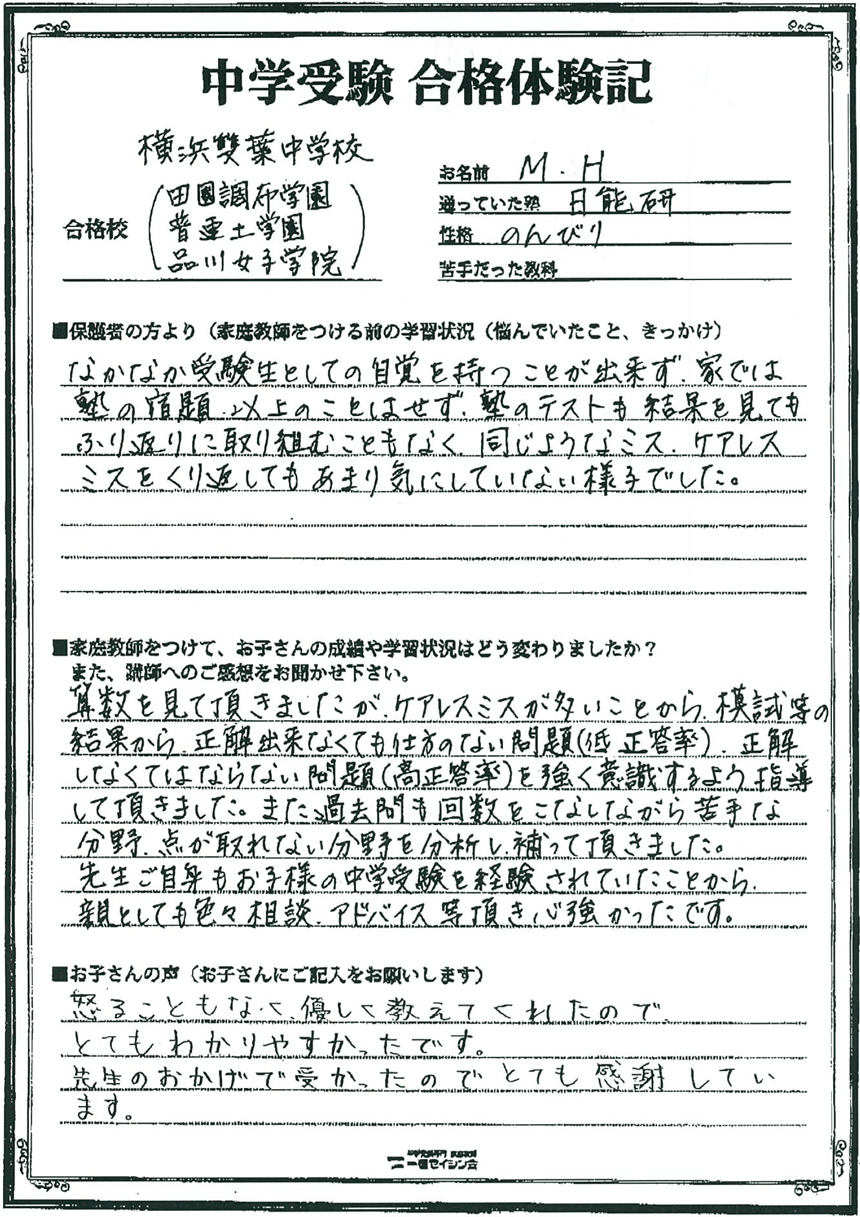 中学受験 合格体験記
横浜雙葉中学校
合格校
田園調布学園
普連土学園
品川女子学院
お名前 M.H
通っていた塾 日能研
性格 のんびり
苦手だった教科
■保護者の方より（家庭教師をつける前の学習状況（悩んでいたこと、きっかけ）
なかなか受験生としての自覚を持つことが出来ず、家では
塾の宿題以上のことはせず、塾のテストも結果を見ても
ふり返りに取り組むこともなく、同じようなミス、ケアレス
ミスをくり返してもあまり気にしていない様子でした。
■家庭教師をつけて、お子さんの成績や学習状況はどう変わりましたか？
また、講師へのご感想をお聞かせ下さい。
算数を見て頂きましたが、ケアレスミスが多いことから、模試等の
結果から、正解出来なくても仕方のない問題(低正答率)、正解
しなくてはならない問題(高正答率)を強く意識するよう指導
して頂きました。また過去問も回数をこなしながら苦手な
分野、点が取れない分野を分析し、補って頂きました。
先生ご自身もお子様の中学受験を経験されていたことから、
親としても色々相談、アドバイス等頂き心強かったです。
■お子さんの声（お子さんにご記入をお願いします）
怒ることもなく、優しく教えてくれたので、
とてもわかりやすかったです。
先生のおかげで受かったのでとても感謝してい
ます。